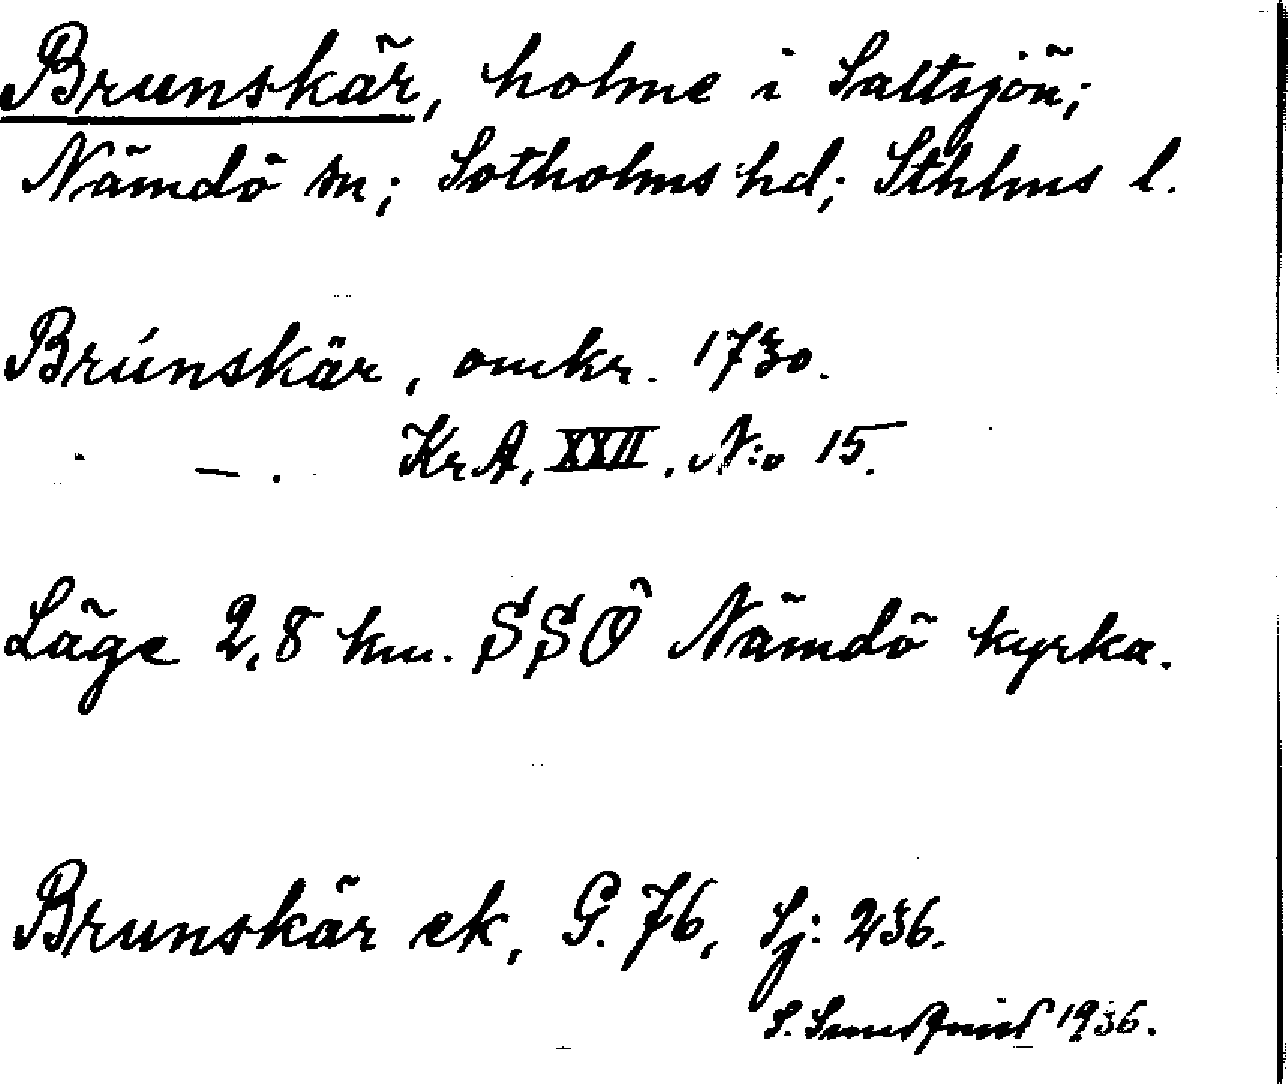 Brunskär, holme i Saltsjön;
Nämdö sn; Sotholms hd; Sthlms l.
Brúnskär, omkr. 1730.
— . KrA, XXII. N:o 15.
Läge 2,8 km. SSÖ Nämdö kyrka.
Brunskär ek, G. 76, Sj: 236.
S. 1936.